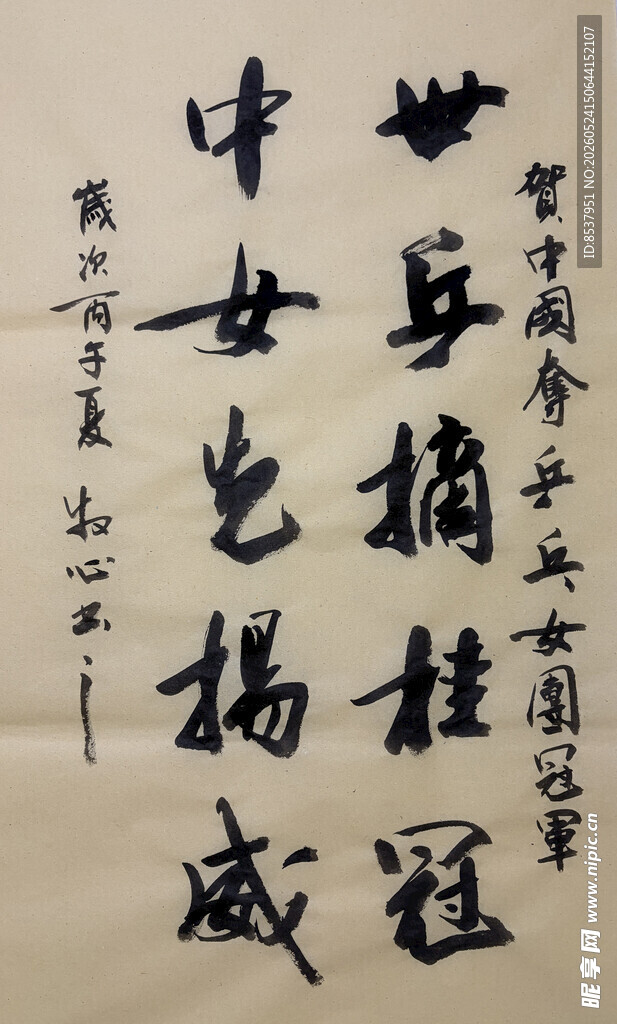 賀中國奪乒乓女團冠軍
世乒摘桂冠
中女先揚威
歲次丙午夏 牧心书之
ID:8537951 NO:20260524150644152107
昵享网 www.nipic.cn